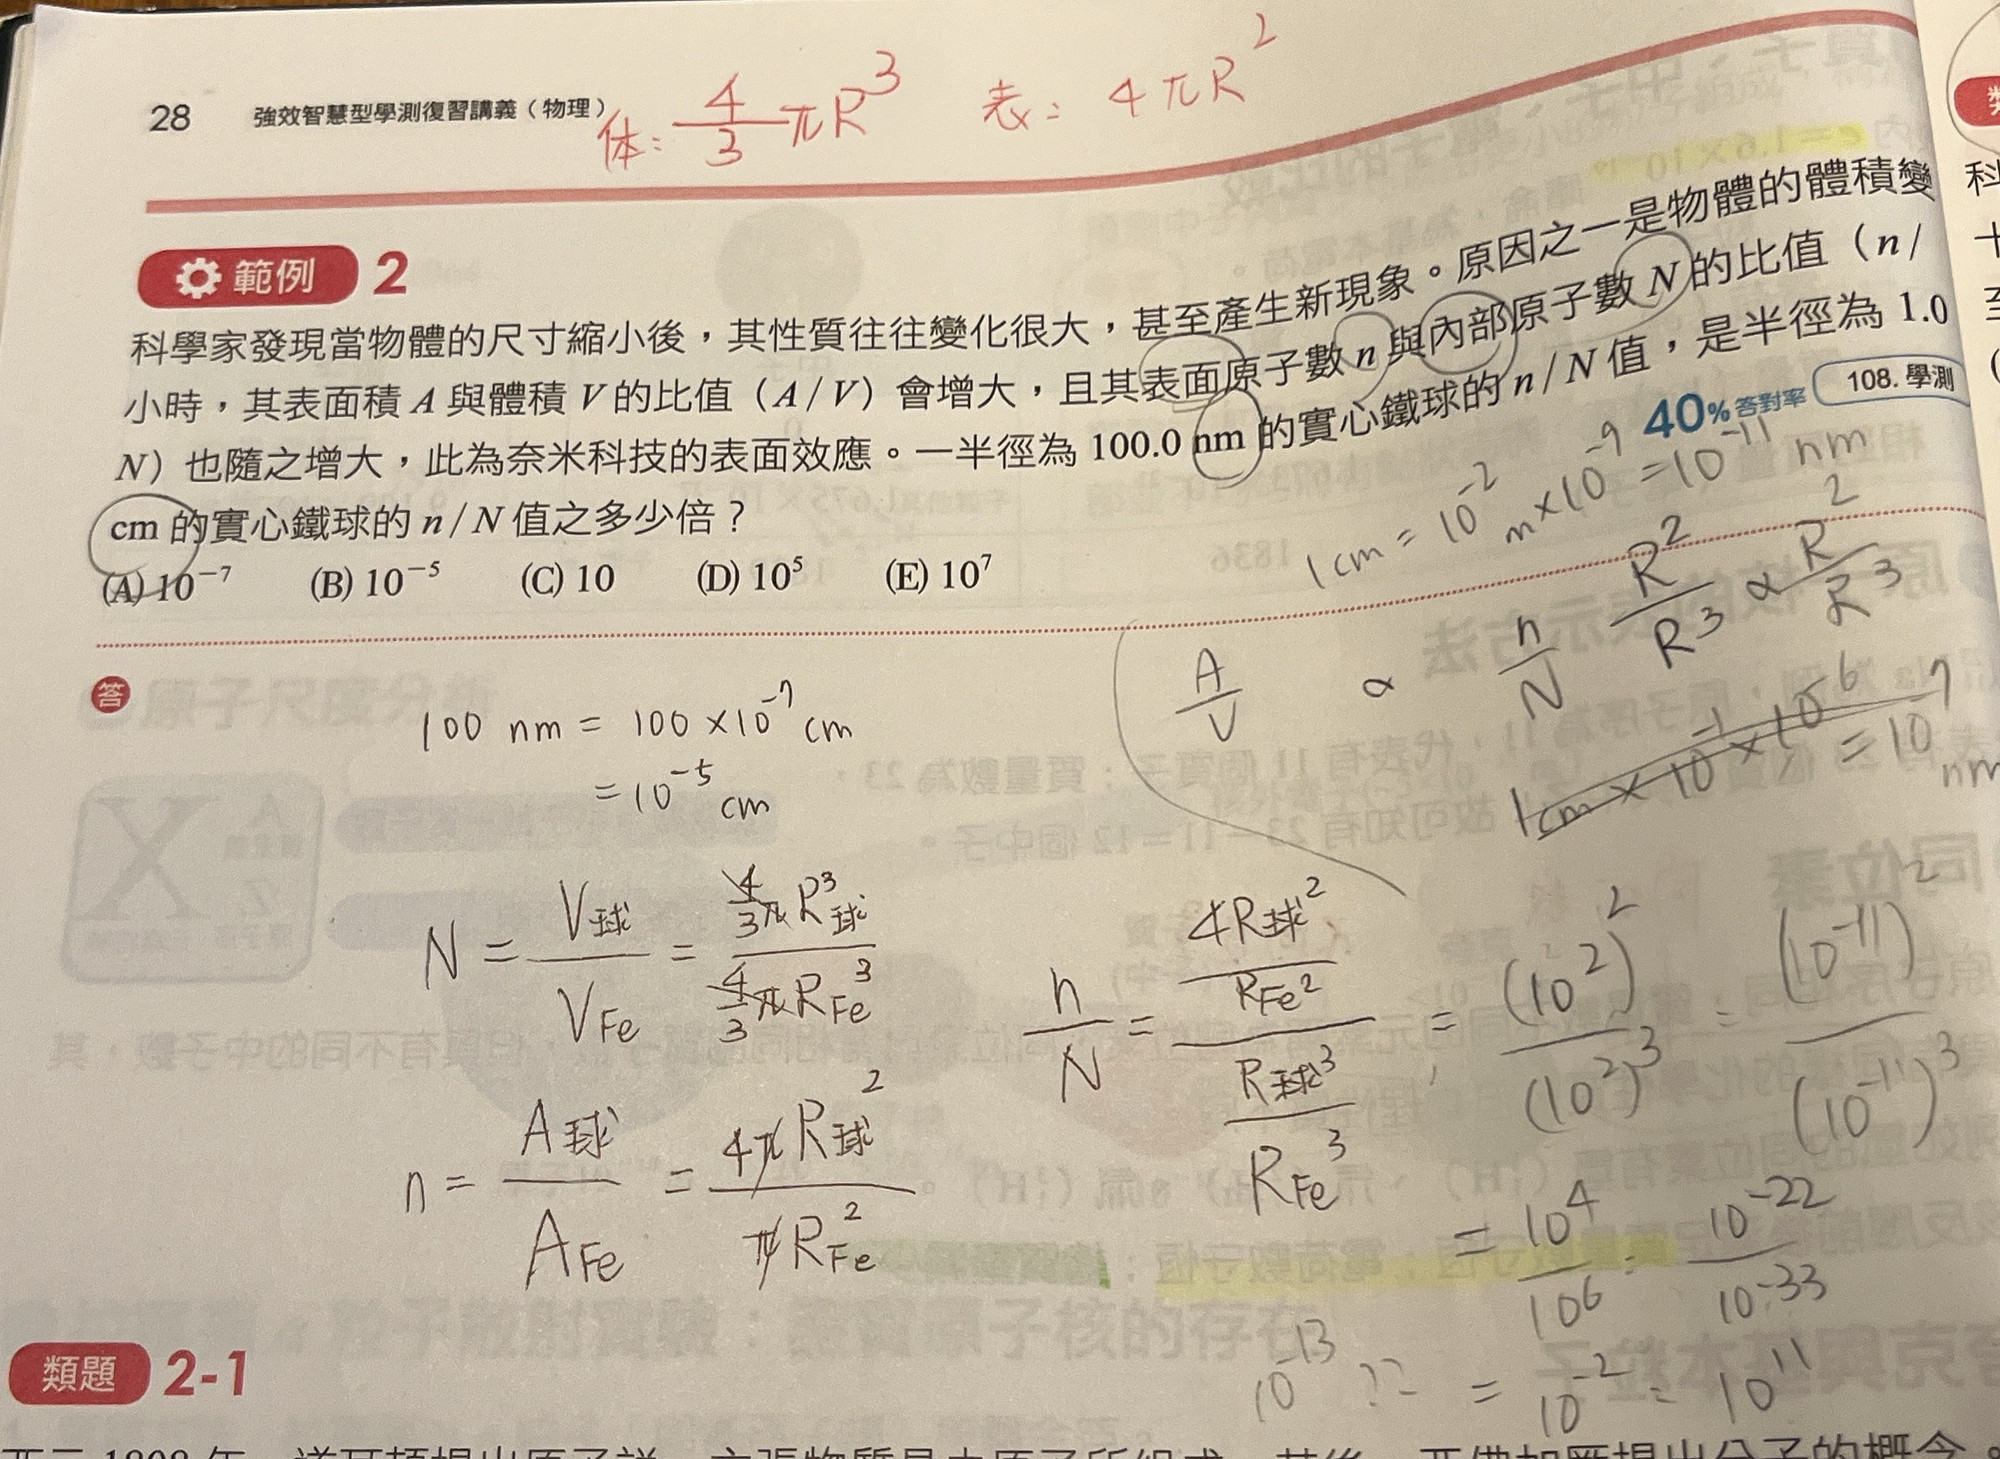 28 強效智慧型學測復習講義（物理）
体：4/3 πR³ 表：4πR²
範例 2
科學家發現當物體的尺寸縮小後，其性質往往變化很大，甚至產生新現象。原因之一是物體的體積變
小時，其表面積 A 與體積 V 的比值（A / V）會增大，且其表面原子數 n 與內部原子數 N 的比值（n /
N）也隨之增大，此為奈米科技的表面效應。一半徑為 100.0 nm 的實心鐵球的 n / N 值，是半徑為 1.0
cm 的實心鐵球的 n / N 值之多少倍？
40% 答對率 108. 學測
(A) 10⁻⁷ (B) 10⁻⁵ (C) 10 (D) 10⁵ (E) 10⁷
1cm = 10⁻² m×10⁻⁹ = 10⁻¹¹ nm
答
A/V ∝ n/N R²/R³ ∝ R²/R³
100 nm = 100 ×10⁻⁷ cm
= 10⁻⁵ cm
1cm × 10⁻¹ × 10⁻⁶ = 10⁻⁷ nm
N = V球/V Fe = 4/3 πR球³ / 4/3 πR Fe³
n/N = (4R球²/R Fe²) / (R球³/R Fe³) = (10²)²/(10²)³ = (10⁻¹¹)²/(10⁻¹¹)³
n = A球/A Fe = 4πR球²/πR Fe²
= 10⁴/10⁶ = 10⁻²²/10⁻³³
10⁻¹³ ?? = 10⁻² = 10¹¹
類題 2-1